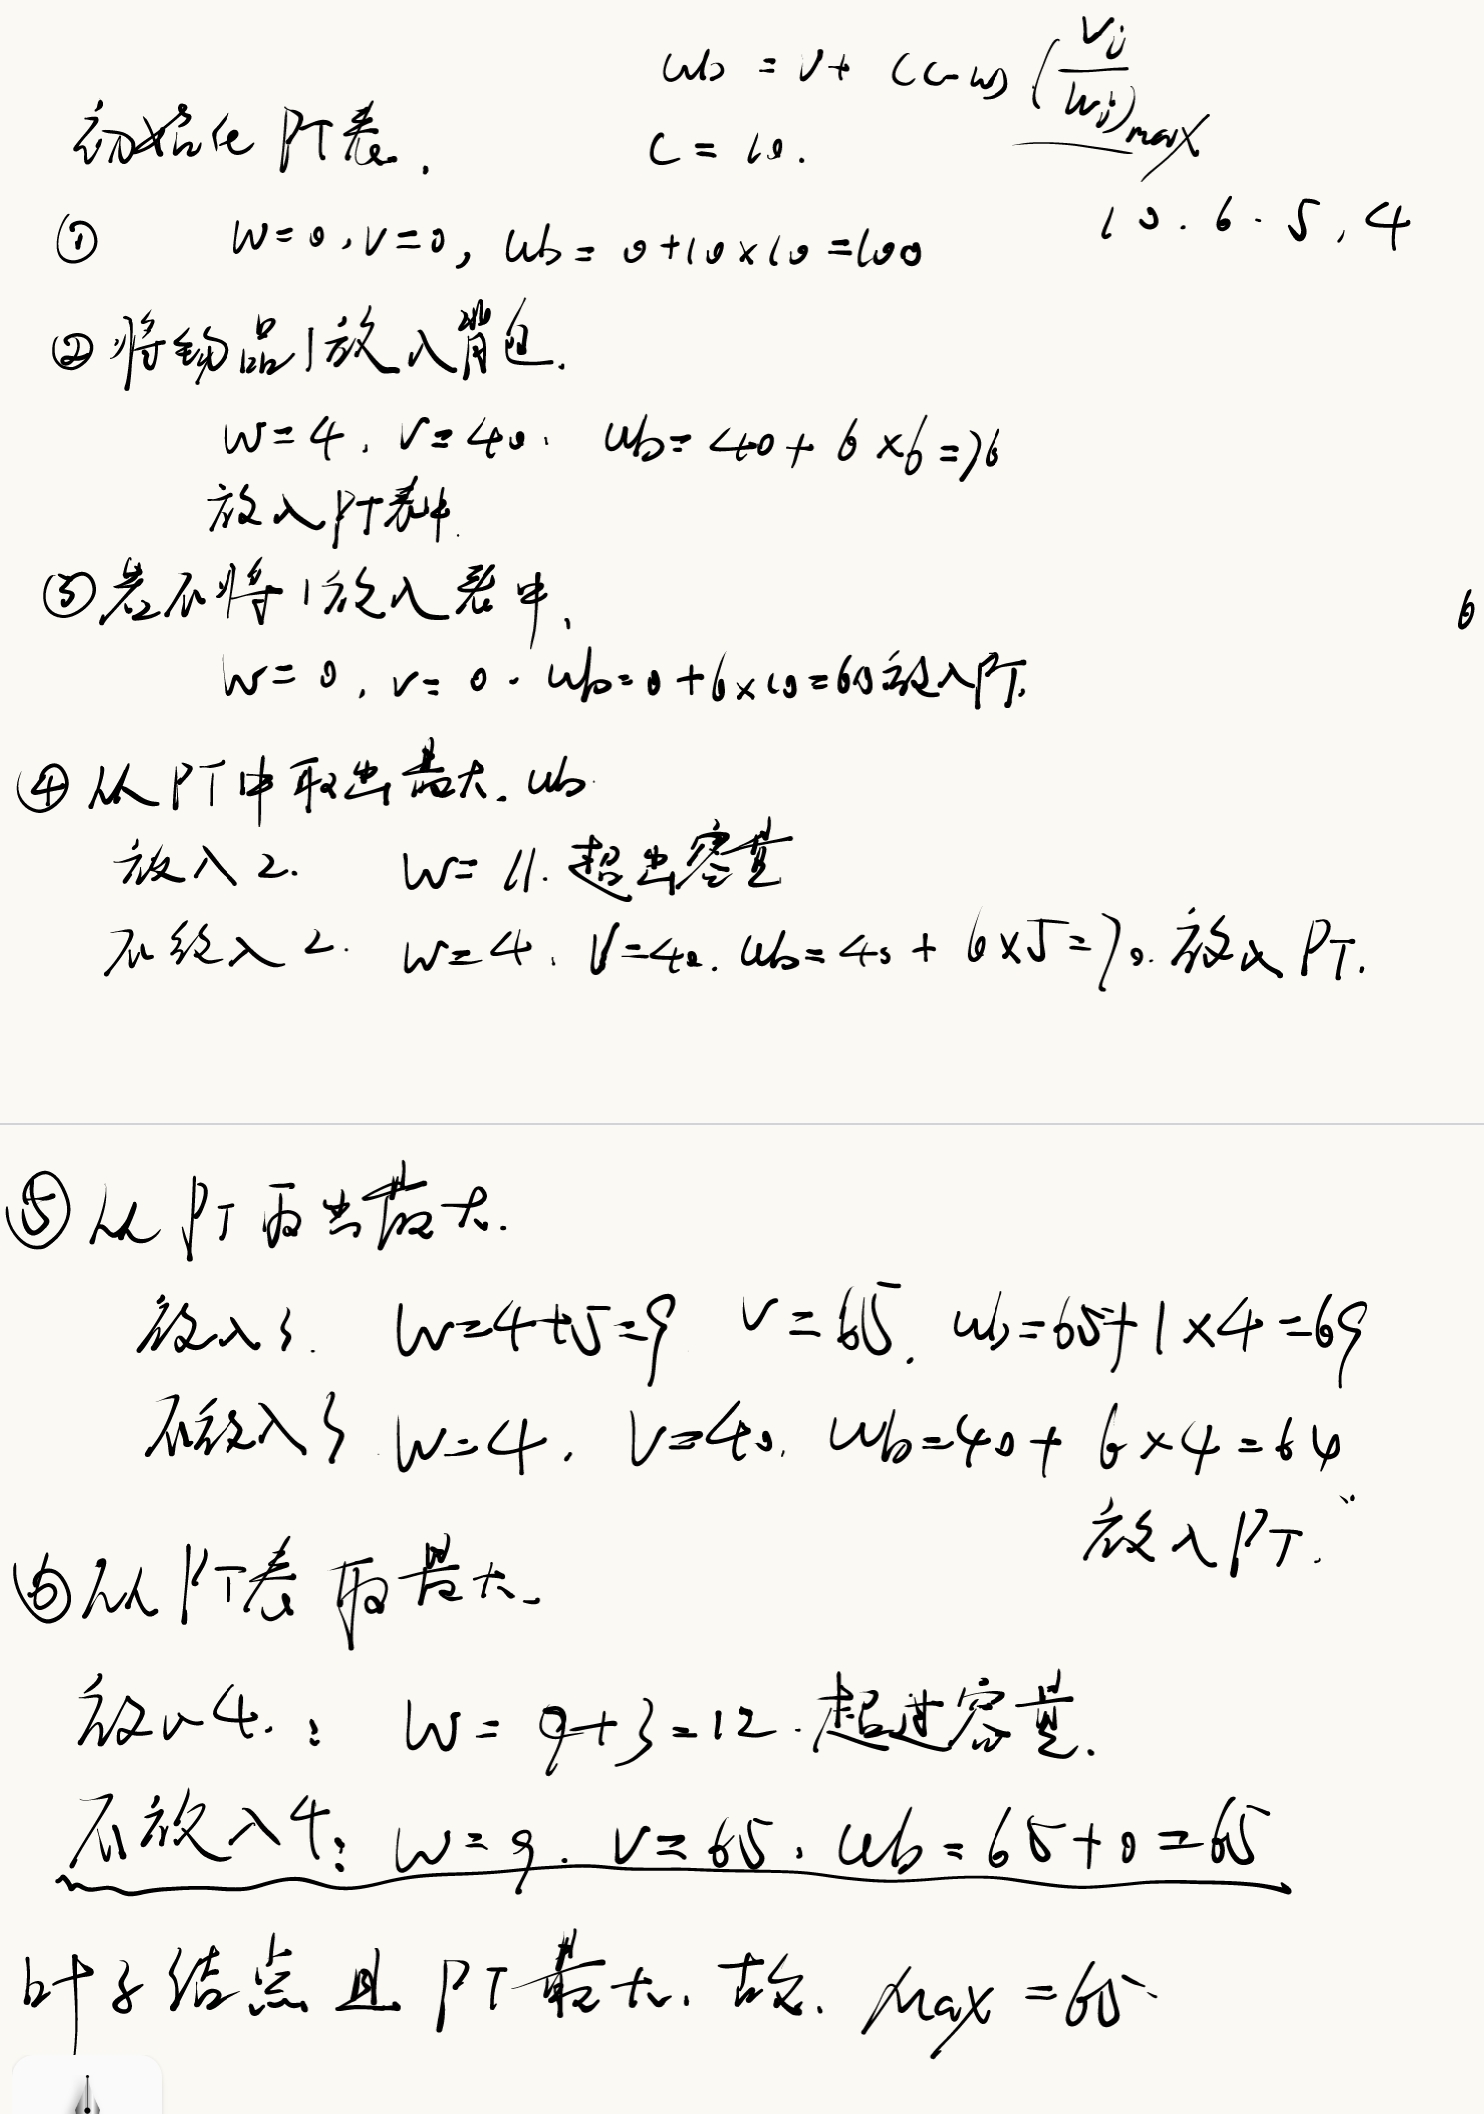 ub = v + (c-w) (vi/wi)max
初始化 PT表.
c = 10.
10. 6. 5, 4
① w=0, v=0, ub= 0+10×10=100
② 将物品1放入背包.
w=4, v=40. ub= 40+6×6=76
放入PT表中.
③ 若不将1放入表中,
6
w=0, v=0. ub=0+6×10=60放入PT.
④ 从PT中取出最大. ub.
放入2. w=11. 超出容量
不放入2. w=4, v=40. ub=40+6×5=70. 放入PT.
⑤ 从PT取出最大.
放入3. w=4+5=9 v=65. ub=65+1×4=69
不放入3 w=4, v=40, ub=40+6×4=64
放入PT.
⑥ 从PT表取最大.
放入4.: w=9+3=12. 超过容量.
不放入4: w=9. v=65, ub=65+0=65
叶子结点且PT最大, 故. max=65